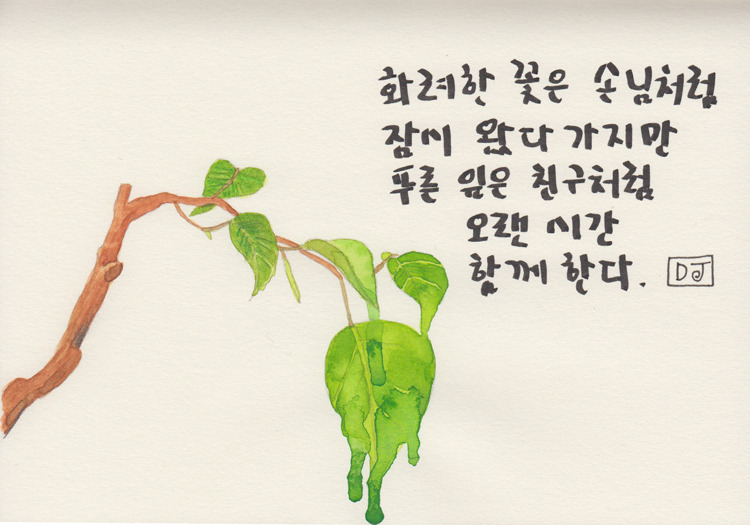 화려한 꽃은 손님처럼
잠시 왔다 가지만
푸른 잎은 친구처럼
오랜 시간
함께 한다.
DJ